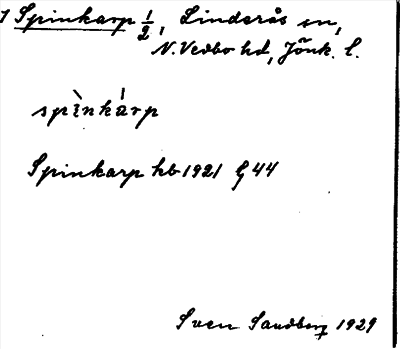 1 Spinkarp 1/2, Linderås sn,
N. Vedbo hd, Jönk. l.
spìnkárp
Spinkarp hb 1921 G 44
Sven Sandberg 1929